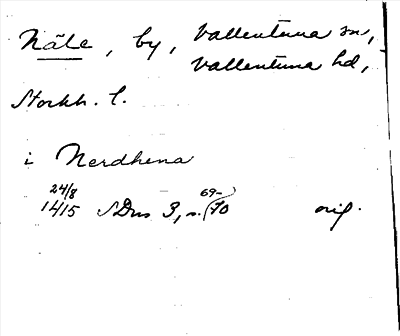 Näle, by, Vallentuna sn,
Vallentuna hd,
Stockh. l.
i Nerdhena
24/8
1415 SDns 3, s. (69-)70 orig.